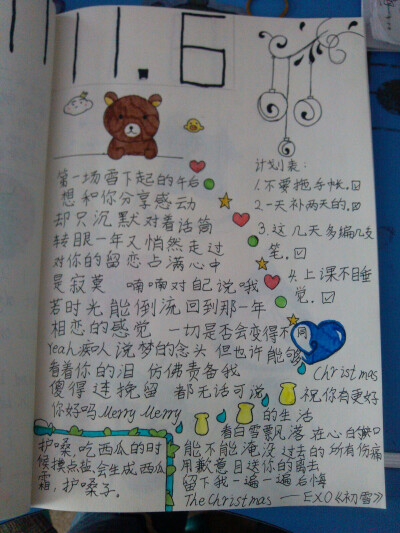 11.6
第一场雪下起的午后
想和你分享感动
却只沉默对着话筒
转眼一年又悄然走过
对你的留恋占满心中
是寂寞 喃喃对自己说哦
若时光能倒流回到那一年
相恋的感觉 一切是否会变得不同
Yeah痴人说梦的念头 但也许能够
看着你的泪 仿佛责备我
傻得连挽留 都无话可说
你好吗Merry Merry Christmas
祝你有更好的生活
看白雪飘落 在心白
能不能淹没过去的所有伤痛
用歉意目送你的离去
留下我一遍一遍后悔
The Christmas —— EXO《初雪》
计划表:
1.不要拖手帐.
2.一天补两天的.
3.这几天多编几支
笔.
4.上课不睡
觉.
护嗓,吃西瓜的时
候撲点盐,会生成西瓜
霜,护嗓子。